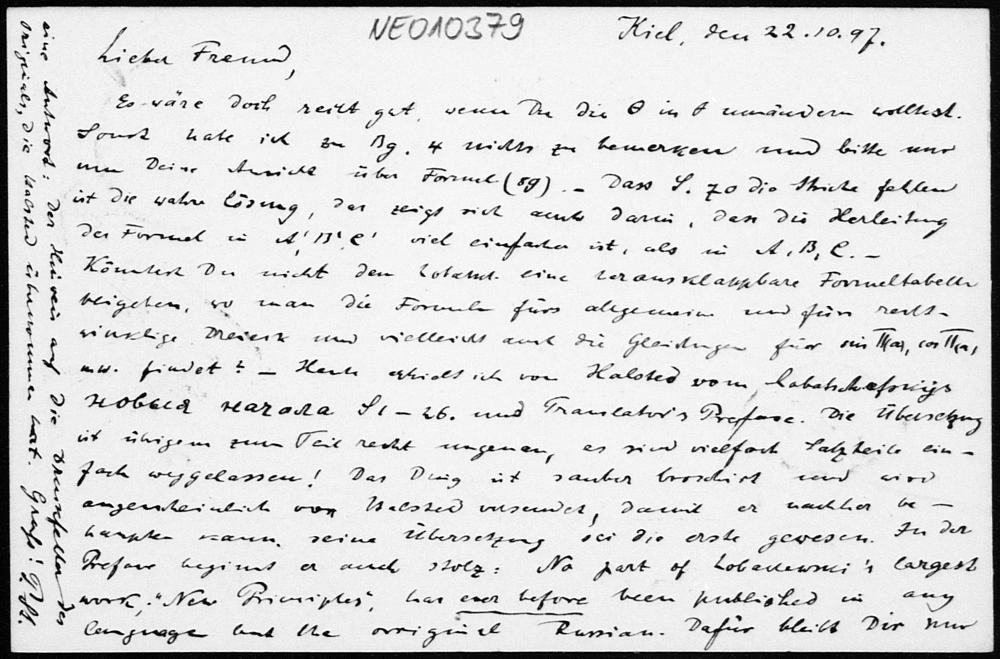 NEO10379
Kiel, den 22.10.97.
Lieber Freund,
Es wäre doch recht gut, wenn Du die Θ in ϑ umändern wolltest.
Sonst habe ich zu Bg. 4 nichts zu bemerken und bitte nur
um Deine Ansicht über Formel (89). – Dass S. 70 die Striche fehlen
ist die wahre Lösung, das zeigt sich auch darin, dass die Herleitung
der Formel in A', B', C' viel einfacher ist, als in A, B, C. –
Könntest Du nicht dem Lobatsch. eine herausklappbare Formeltabelle
beigeben, wo man die Formeln fürs allgemeine und fürs recht-
winklige Dreieck und vielleicht auch die Gleichungen für sin Π(a), cos Π(a),
usw. findet? – Heute erhielt ich von Halsted vom Lobatschefskijs
новыя начала S 1 – 26. und Translator's Preface. Die Übersetzung
ist übrigens zum Teil recht ungenau, es sind vielfach Satzteile ein-
fach weggelassen! Das Ding ist sauber broschirt und wird
augenscheinlich von Halsted versendet, damit er nachher be-
haupten kann, seine Übersetzung sei die erste gewesen. In der
Preface beginnt er auch stolz: No part of Lobachewski's largest
work, "New Principles", has ever before been published in any
language but the orriginel Russian. Dafür bleibt Dir nur
eine Antwort: der Hinweis auf die Druckfehler des
Originals, die Halsted übernommen hat. Gruss! P. St.